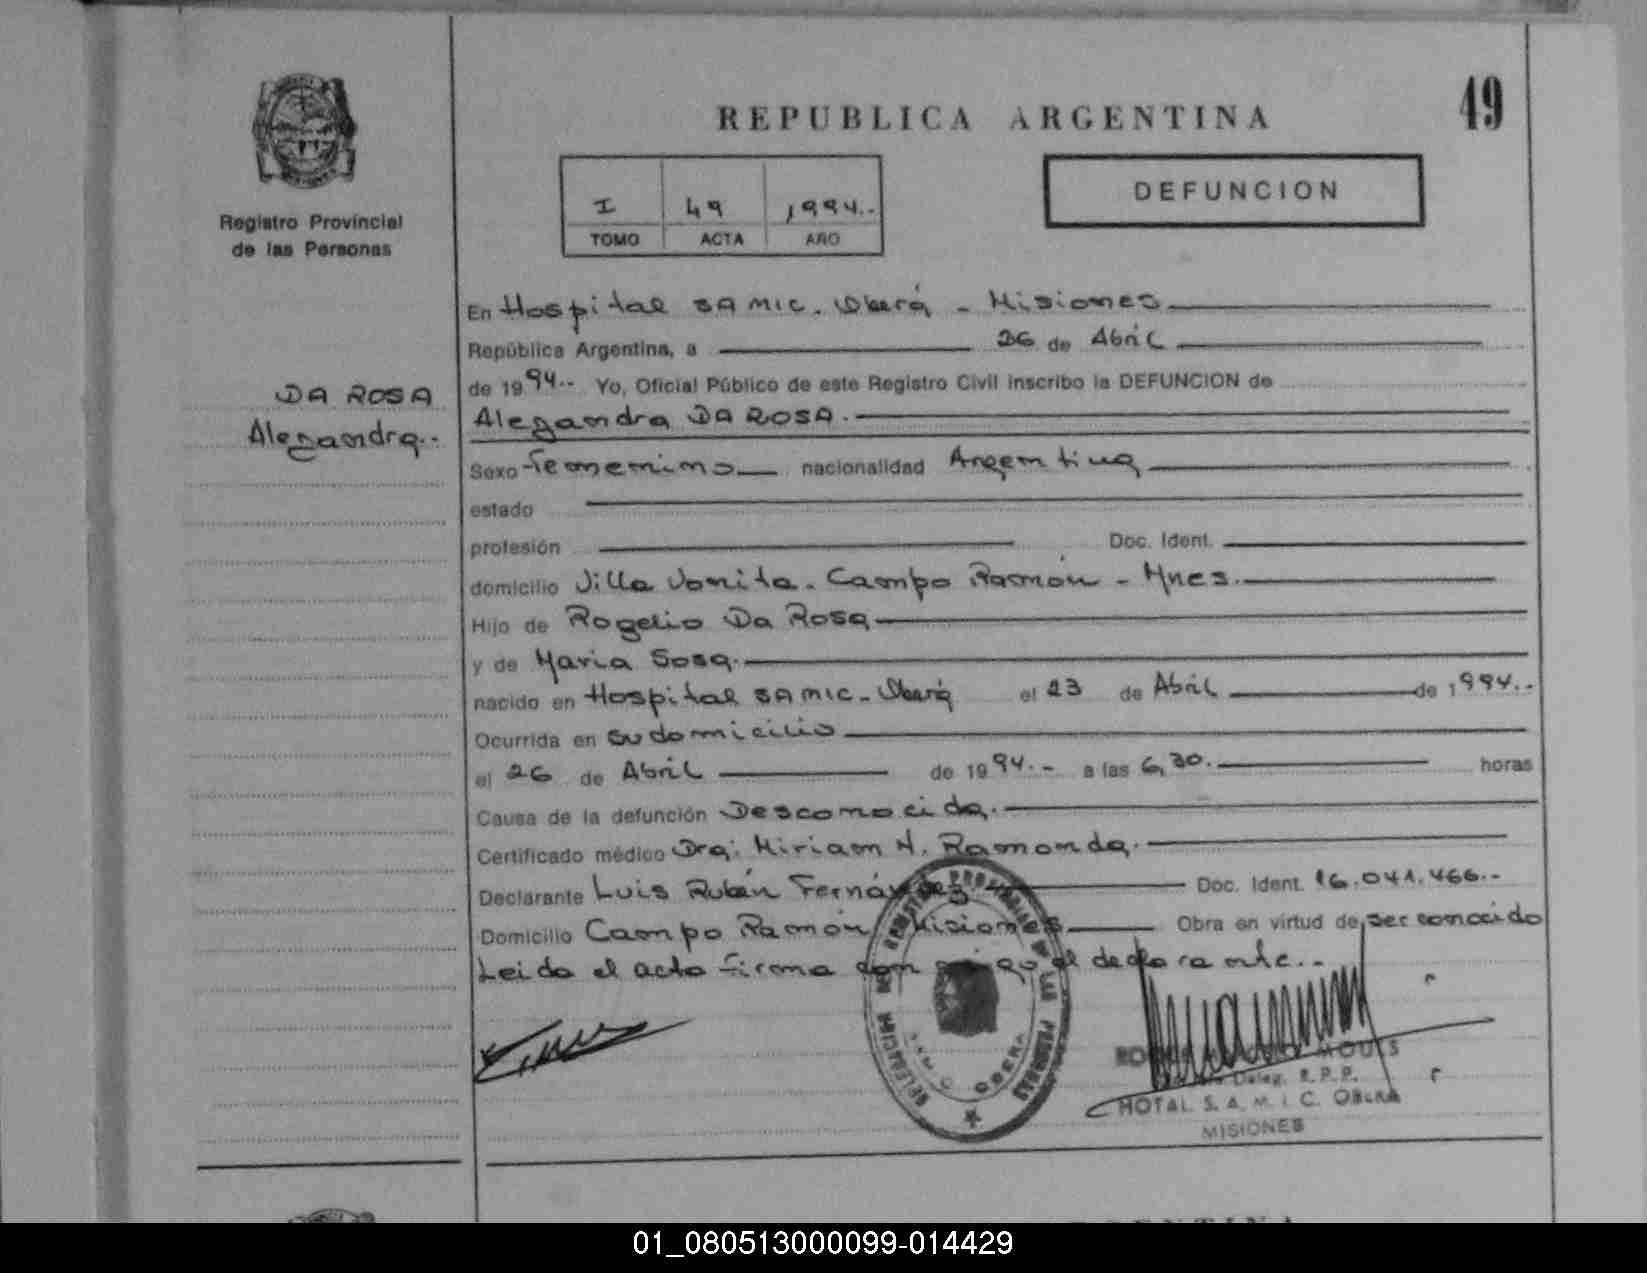 REPUBLICA ARGENTINA
49
I 49 1994..
TOMO ACTA AÑO
DEFUNCION
Registro Provincial
de las Personas
DA ROSA
Alegandra..
En Hospital SAMIC. Oberá - Misiones
República Argentina, a 26 de Abril
de 1994.. Yo, Oficial Público de este Registro Civil inscribo la DEFUNCION de
Alegandra DA ROSA.
Sexo Femenino nacionalidad Argentina
estado
profesión Doc. Ident.
domicilio Villa Bonita. Campo Ramón - Mnes.
Hijo de Rogelio Da Rosa
y de Maria Sosa.
nacido en Hospital SAMIC - Oberá el 23 de Abril de 1994..
Ocurrida en su domicilio
el 26 de Abril de 1994.- a las 6,30. horas
Causa de la defunción Desconocida.
Certificado médico Dra: Miriam N. Ramonda.
Declarante Luis Rubén Fernández Doc. Ident. 16.041.466.-
Domicilio Campo Ramón Misiones Obra en virtud de ser conocido
Leido el acto firma conmigo el declarante..
DELEGACION DEL REGISTRO PROVINCIAL DE LAS PERSONAS
OBERA
MOUIS
Deleg. R.P.P.
HOTAL S. A. M. I. C. OBERA
MISIONES
01_080513000099-014429